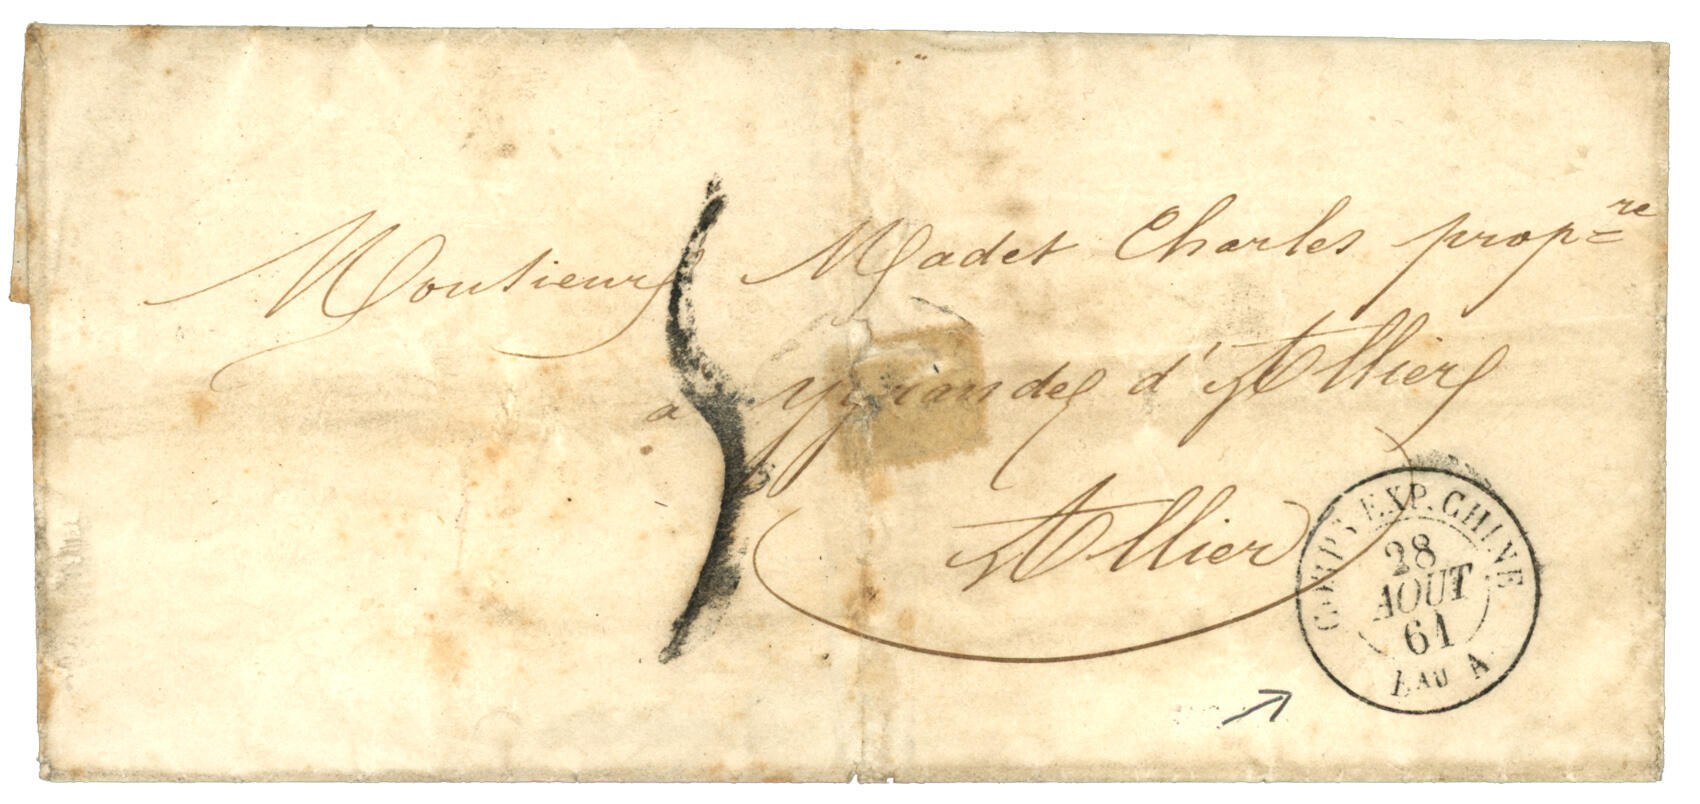 Monsieur Madet Charles propre
à Ygrandes d'Allier
Allier
CORPS EXP. CHINE
28
AOUT
61
Bau A.